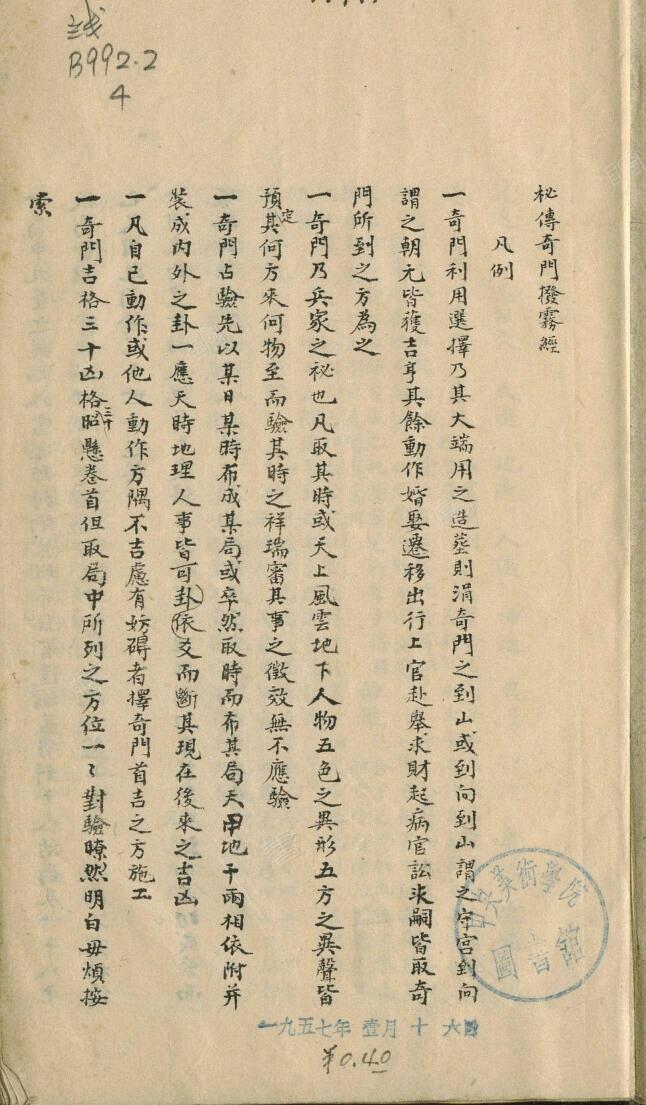 线
B992.2
4
秘傳奇門撥霧經
凡例
一奇門利用選擇乃其大端用之造塟則涓奇門之到山或到向到山謂之守宮到向
謂之朝元皆獲吉亨其餘動作婚娶遷移出行上官赴舉求財起病官訟求嗣皆取奇
門所到之方為之
一奇門乃兵家之祕也凡取其時或天上風雲地下人物五色之異形五方之異聲皆
預定其何方來何物至而驗其時之祥瑞審其事之徵效無不應驗
一奇門占驗先以某日某時布成某局或卒然取時而布其局天甲地干兩相依附并
裝成内外之卦一應天時地理人事皆可卦依爻而斷其現在後來之吉凶
一凡自己動作或他人動作方隅不吉慮有妨碍者擇奇門首吉之方施工
一奇門吉格三十凶格三十昭懸卷首但取局中所列之方位一〻對驗瞭然明白毋煩按
索
中央美術學院
圖書館
一九五七年壹月十六日
¥0.40